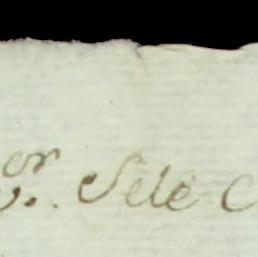 or. Sele C